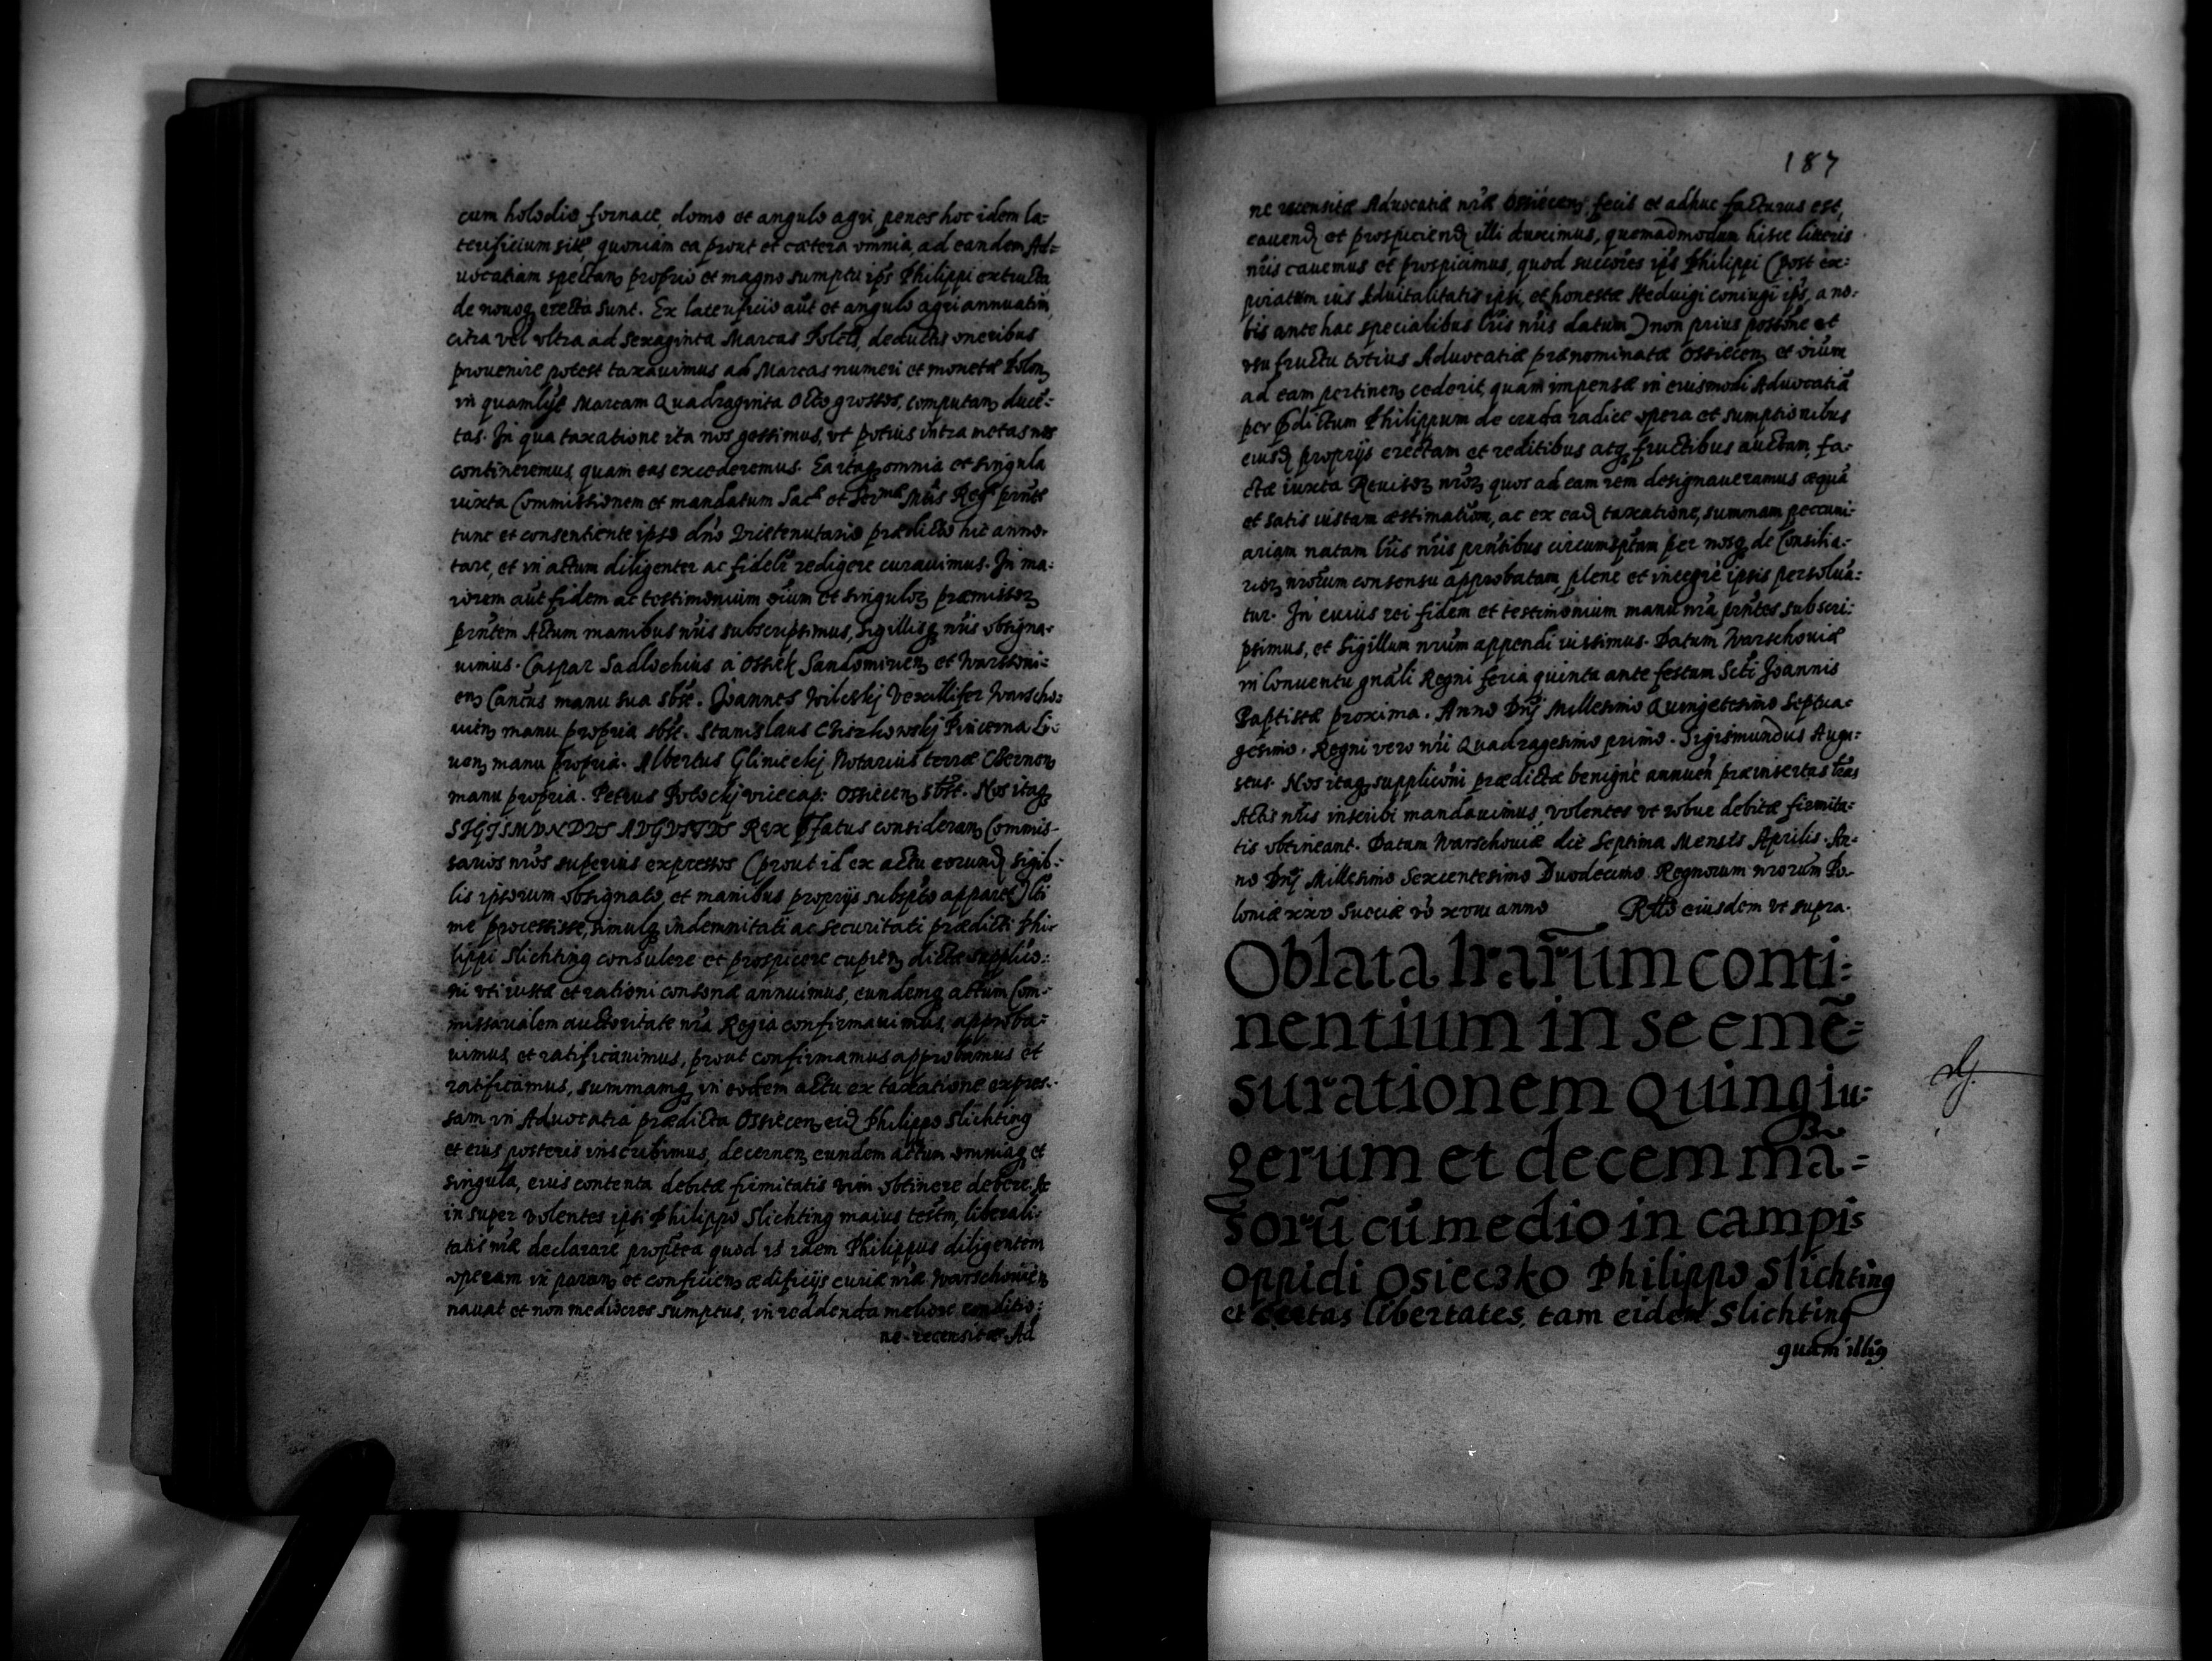 cum holodio fornace, domo et angulo agri penes hoc idem la=
terificium site, quoniam ea prout et cætera omnia, ad eandem Ad=
uocatiam spectan proprio et magno sumptu ips Philippi extructa
de nouoq erecta sunt. Ex laterificio aut et angulo agri annuatim,
citra vel vltra ad sexaginta Marcas deductis oneribus
prouenire potest taxauimus ad Marcas numeri et monetæ Polon
in quamlibet Marcam Quadraginta Octo grossos, computan ducē=
tas. In qua taxatione ita nos gessimus, vt potius intra metas nos
contineremus, quam eas excederemus. Ea itaq omnia et singula
iuxta Commissionem et mandatum Sacæ et Serme Mtis Regæ prnte
tunc et consentiente ipso dno Vristenutario prædicto hic anno-
tare, et in actum diligenter ac fidelr redigere curauimus. In ma=
iorem aut fidem ac testimonium oium et singuloz præmissoz
prntem Actum manibus nris subscripsimus, sigillisq nris obsigna-
uimus. Caspar Sadlochius à Ossiek Sandomirien et Warssoui=
en Cantus manu sua sbst. Joannes Wilcskj Vexillifer Warscho=
uien manu propria sbst. Stanislaus Chiczkowskj Pincerna Li=
uen manu propria. Albertus Glinieckj Notarius terræ Chernen
manu propria. Petrus Polockj vicecap: Ossiecen sbst. Nos itaq
SIGISMVNDVS AVGVSTVS Rex pfatus consideran Commis-
sarios nros superius expressos (prout id ex actu eorund sigil=
lis ipsorum obsignato, et manibus proprijs subspto apparet) lti
me processisse, simulq indemnitati ac securitati prædicti Phi-
lippi Slichting consulere et prospicere cupien dictæ supplico=
ni vti iustæ et rationi consonæ annuimus, eundemq actum Com-
missarialem auctoritate nra Regia confirmauimus, approba=
uimus et ratificauimus, prout confirmamus approbamus et
ratificamus, summamq in eodem actu ex taxatione expres-
sam in Aduocatia prædicta Ossiecen eid Philippo Slichting
et eius posteris inscribimus, decernen eundem actum omniaq et
singula, eius contenta debitæ firmitatis vim obtinere debere. Ac
in super volentes ipsi Philippo Slichting maius testm, liberali=
tatis nræ declarare proptea quod is idem Philippus diligentem
operam in paran et conficien ædificijs curiæ nræ Warschouien
nauat et non mediocres sumptus, in reddenda meliore conditio=
ne recensitæ Ad
187
ne recensitæ Aduocatiæ nræ Ossiecen fecit et adhuc facturus est,
cauend et prospiciend illi duximus, quemadmodum hisce literis
nris cauemus et prospicimus, quod succores ips Philippi (post ex=
piratum ius Aduitalitatis ipsi, et honestæ Heduigi coniugi ips, a no=
bis ante hac specialibus lris nris datum) non prius possone et
vsu fructu totius Aduocatiæ prænominatæ Ossiecen et oium
ad eam pertinen cederit, quam impensæ in eiusmodi Aduocatiã
per pdictum Philippum de cruda radice opera et sumptionibus
eiusd proprijs erectam et reditibus atq fructibus auctam, fa=
ctæ iuxta Reuisoz nroz quos ad eam rem designaueramus æquã
et satis iustam æstimatiom, ac ex ead taxatione, summam peccuni=
ariam natam lris nris prntibus circumsptam per nosq de Consilia=
rioz nrorum consensu approbatam, plene et integre ipsis persolua=
tur. In cuius rei fidem et testimonium manu nra prntes subscri=
psimus, et Sigillum nrum appendi iussimus. Datum Warschouiæ
in Conuentu gnali Regni feria quinta ante festum Scti Joannis
Baptistæ proxima. Anno Dnj Millesimo Quingetesimo Septua-
gesimo. Regni vero nri Quadragesimo primo. Sigismundus Augu=
stus. Nos itaq suppliconi prædictæ benigne annuen præinsertas lras
Actis nris inscribi mandauimus, volentes vt robur debitæ firmita=
tis obtineant. Datum Warschouiæ die Septima Mensis Aprilis. An=
no Dnj Millesimo Sexcentesimo Duodecimo. Regnorum nrorum Po-
loniæ xxv Sueciæ vo xviii anno Rtto eiusdem vt supra.
Oblata lrarum conti=
nentium in se emẽ=
surationem Quinq iu=
gerum et decem mã=
sorũ cũ medio in campis
Oppidi Osieczko Philippo Slichting
et certas libertates, tam eidem Slichting
quam illis